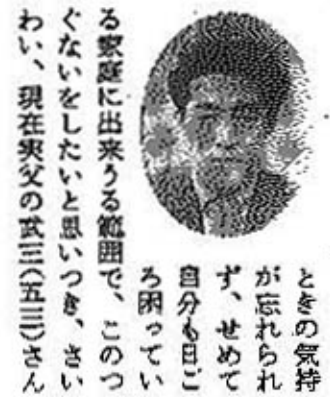 ときの気持
が忘れられ
ず、せめて
自分も日ご
ろ困ってい
る家庭に出来うる範囲で、このつ
ぐないをしたいと思いつき、さい
わい、現在実父の武三(五三)さん